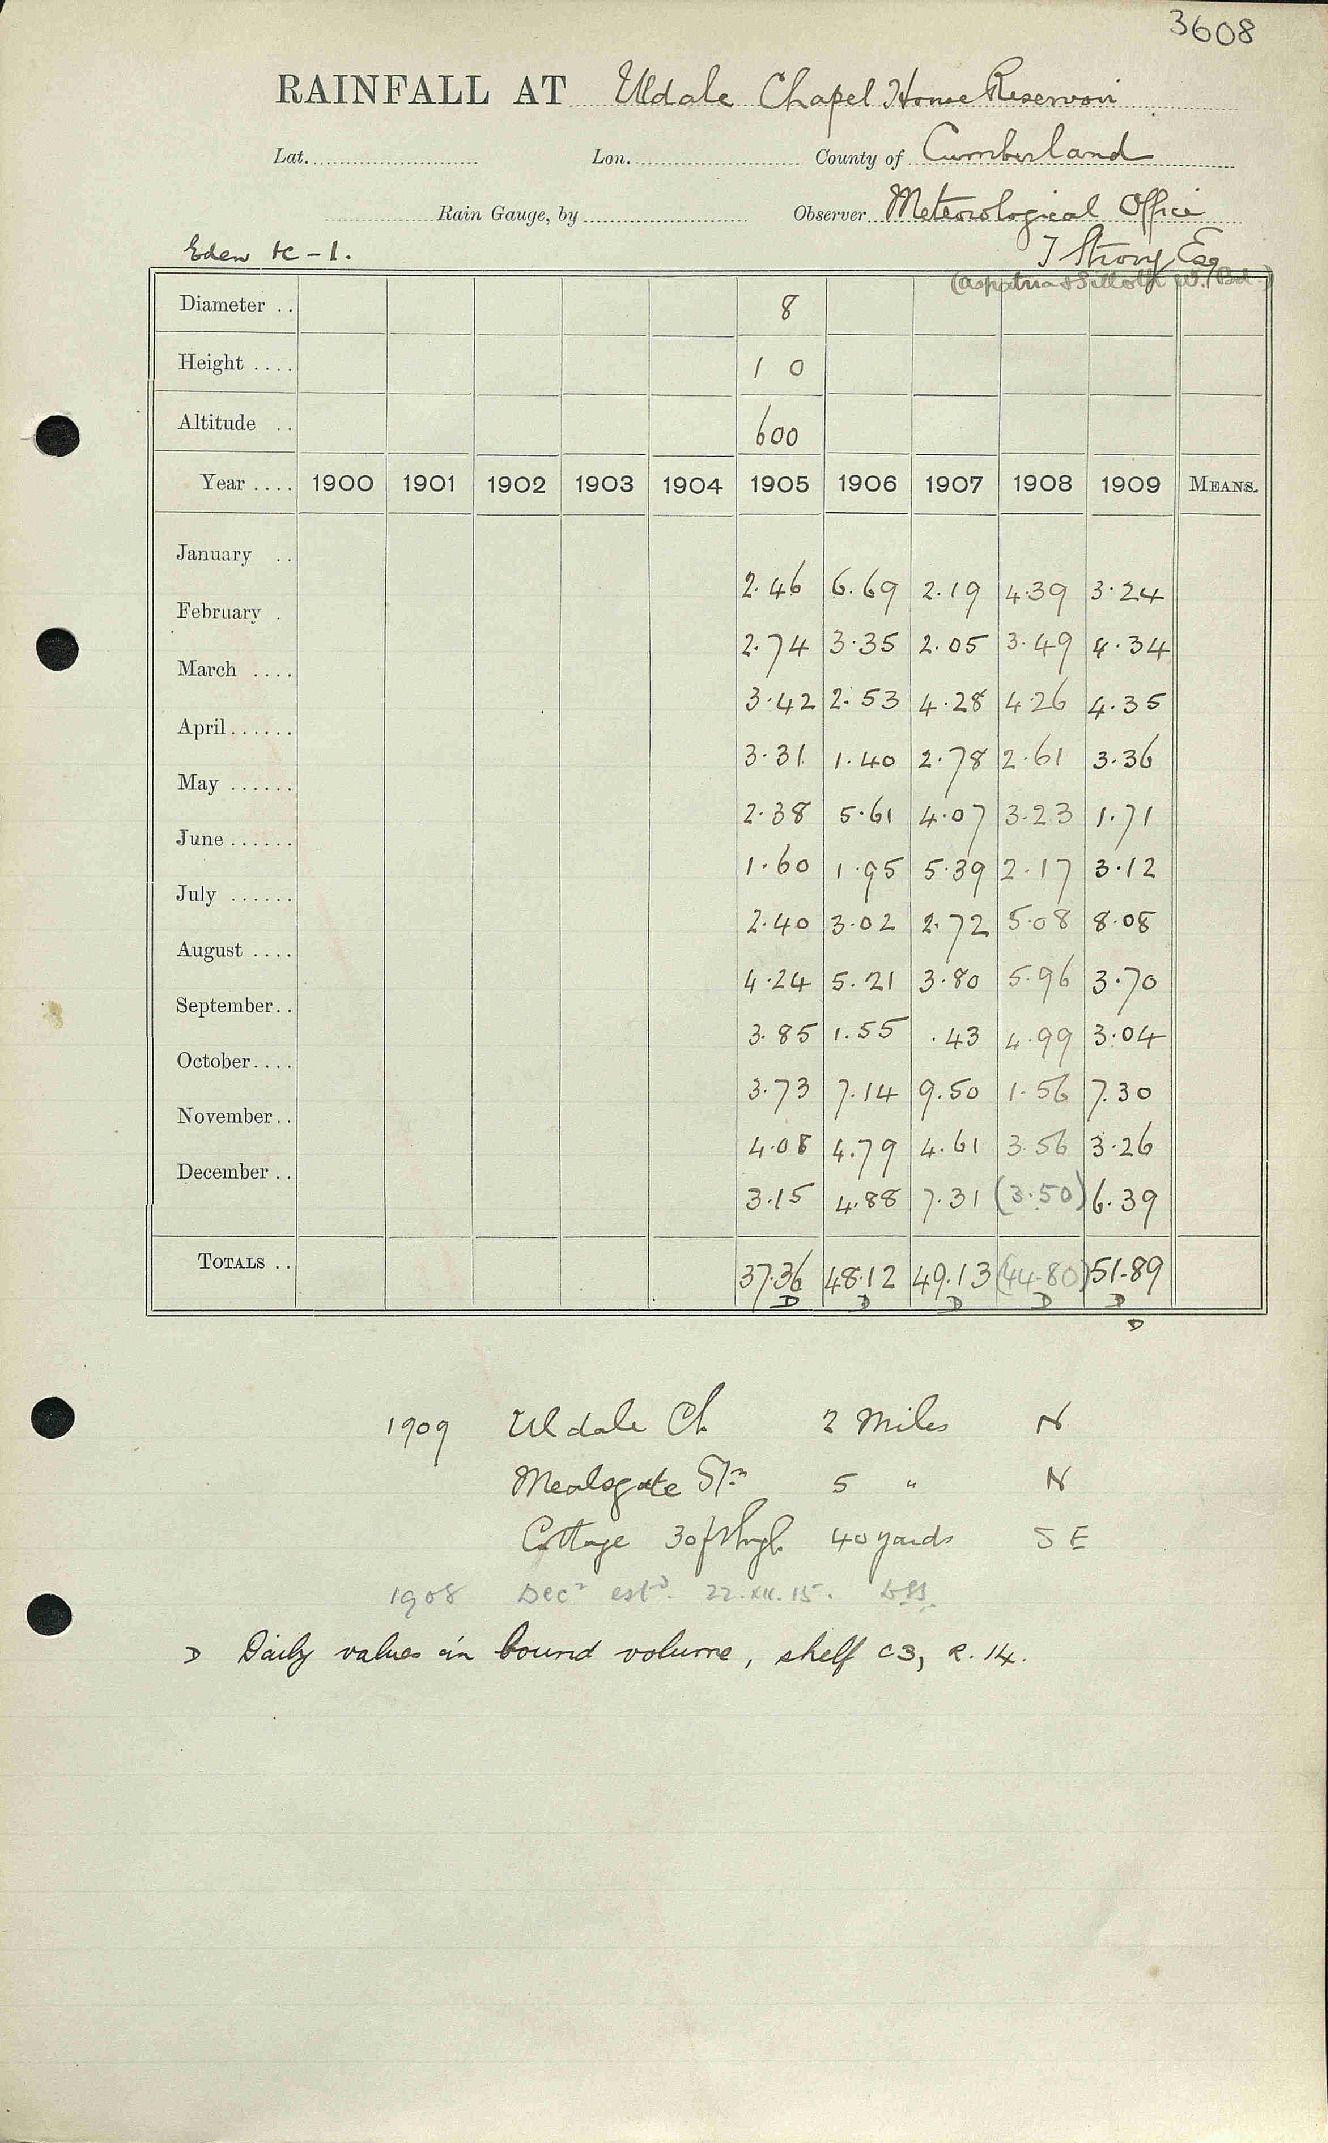 3608
RAINFALL AT Uldale Chapel House Reservoir
Lat. Lon. County of Cumberland
Rain Gauge, by Observer Meteorological Office
Eden K-1. T Strong Esq
(Aspatria & Silloth W. Bd.)
Diameter .. 8
Height .... 1 0
Altitude .. 600
Year .... 1900 1901 1902 1903 1904 1905 1906 1907 1908 1909 MEANS.
January .. 2.46 6.69 2.19 4.39 3.24
February . 2.74 3.35 2.05 3.49 4.34
March .... 3.42 2.53 4.28 4.26 4.35
April...... 3.31 1.40 2.78 2.61 3.36
May ...... 2.38 5.61 4.07 3.23 1.71
June ...... 1.60 1.95 5.39 2.17 3.12
July ...... 2.40 3.02 2.72 5.08 8.08
August .... 4.24 5.21 3.80 5.96 3.70
September.. 3.85 1.55 .43 4.99 3.04
October.... 3.73 7.14 9.50 1.56 7.30
November.. 4.08 4.79 4.61 3.56 3.26
December .. 3.15 4.88 7.31 (3.50) 6.39
TOTALS .. 37.36 48.12 49.13 (44.80) 51.89
D D D D D
D
1909 Uldale Ch 2 Miles N
Mealsgate Stn 5 " N
Cottage 30ft high 40 yards S E
1908 Decr estd. 22.XII.15.
D Daily values in bound volume, shelf C3, R.14.